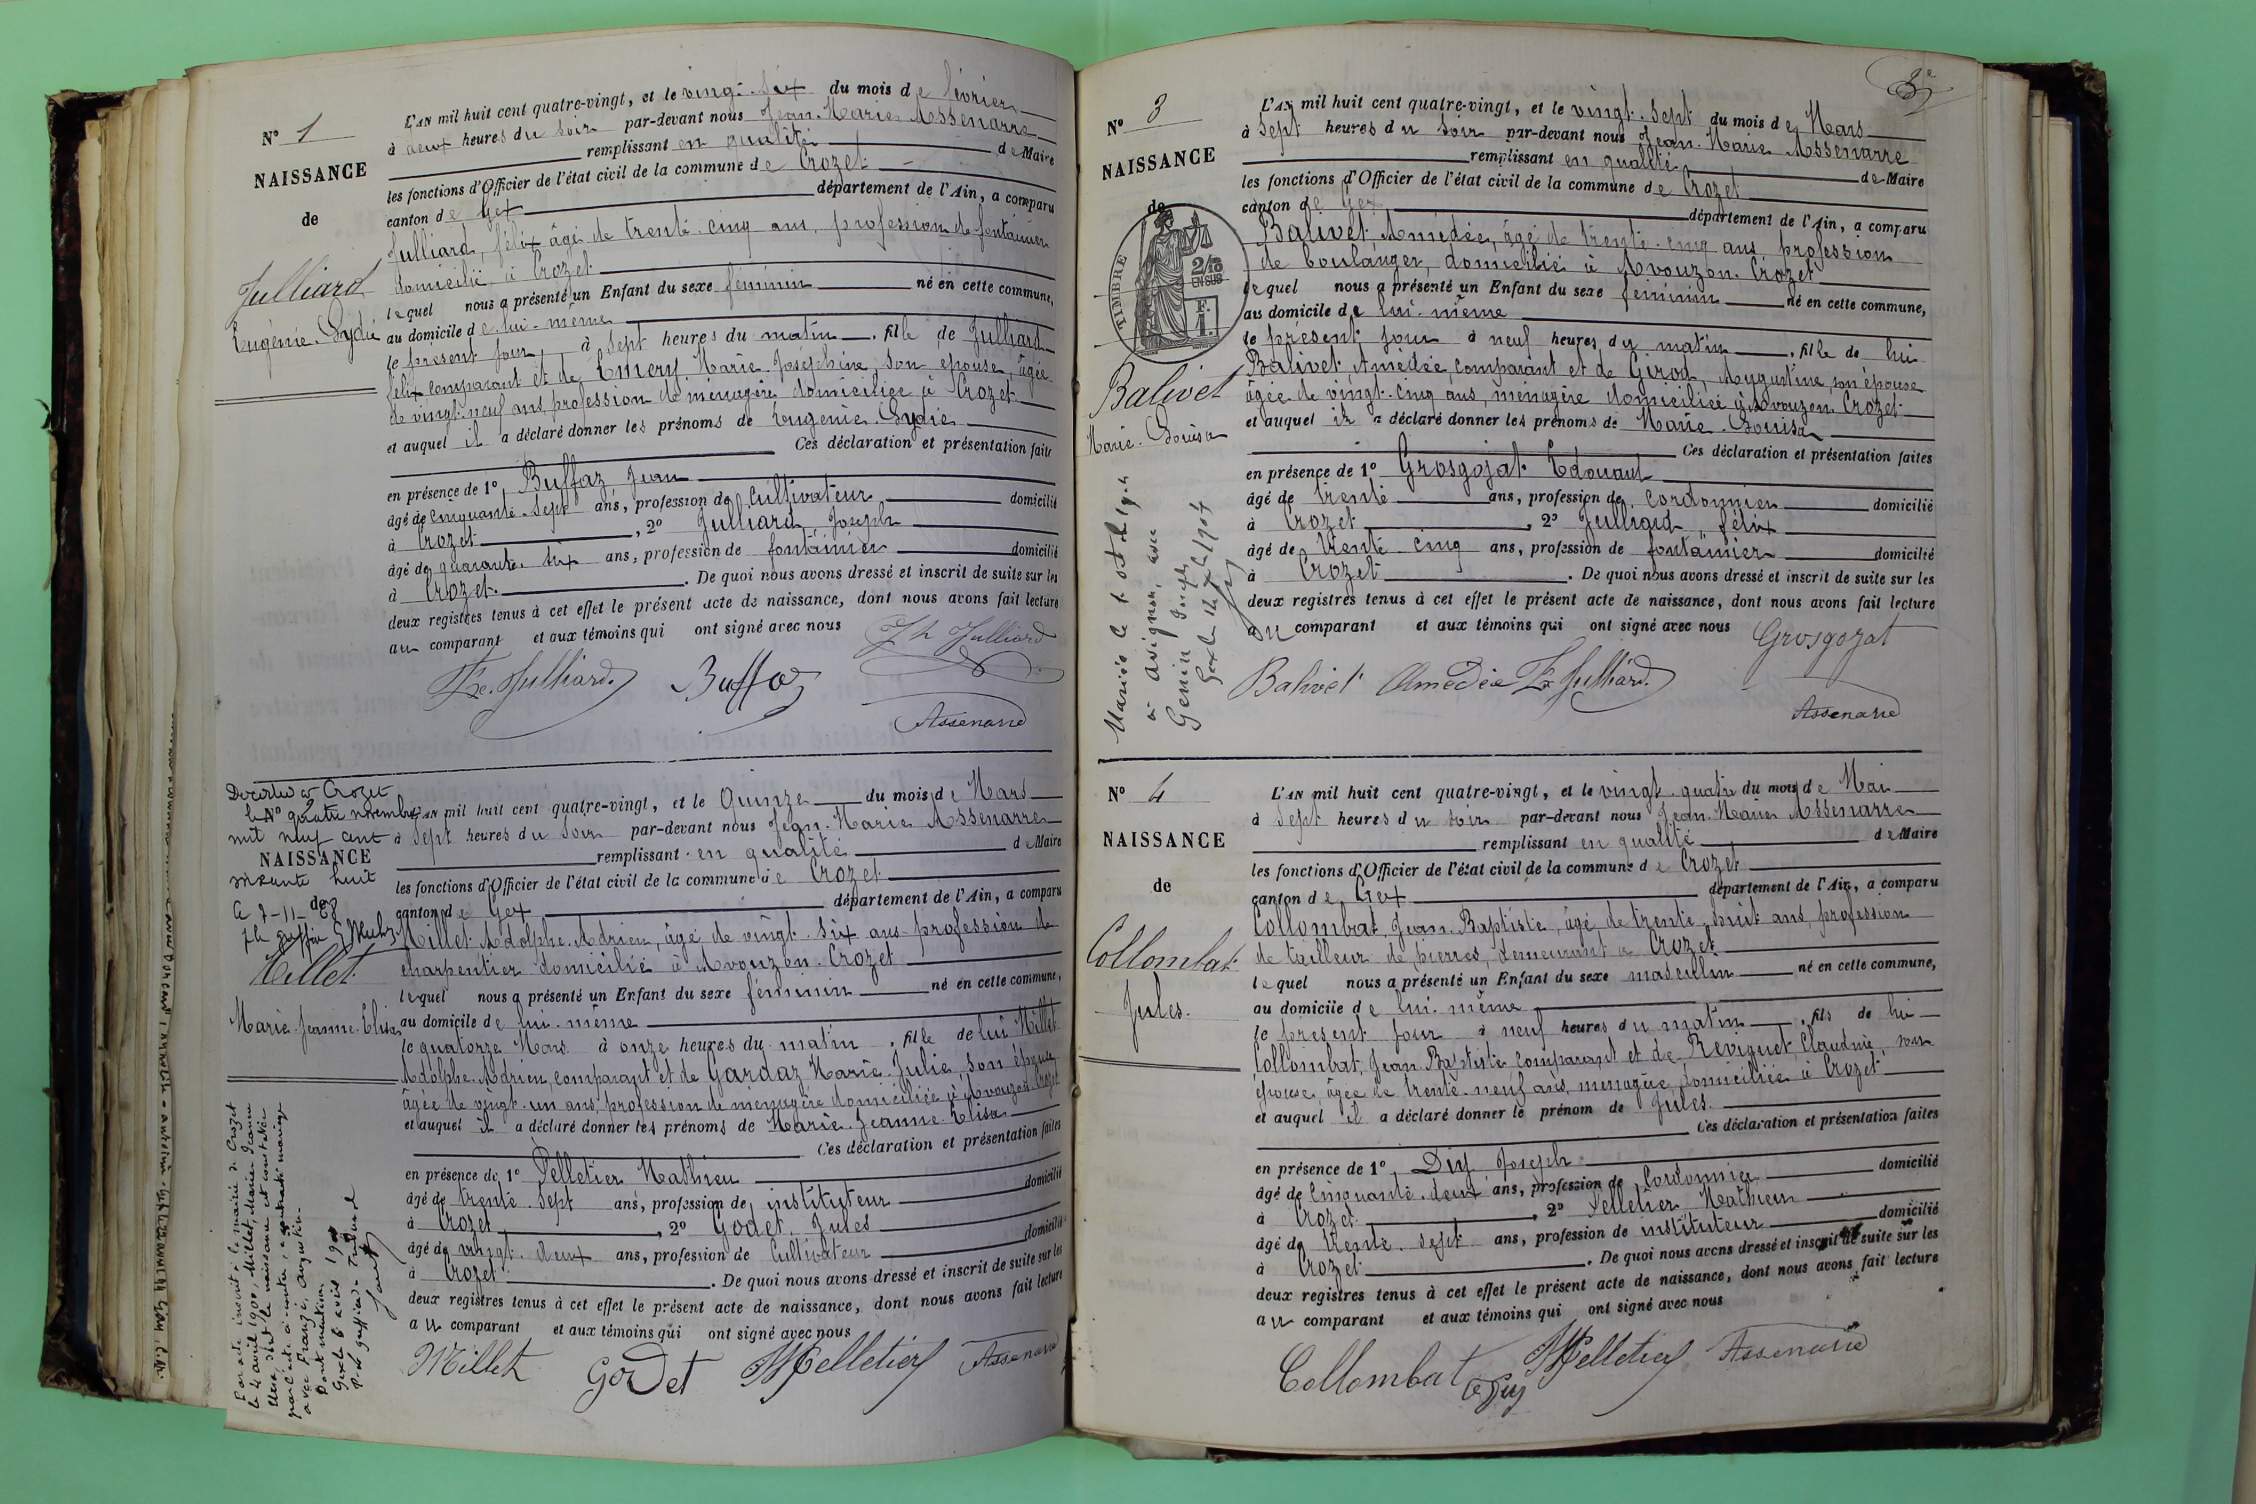 N° 1
NAISSANCE
de
Julliard
Eugénie-Lydie
L'AN mil huit cent quatre-vingt, et le vingt-six du mois de février
à deux heures du soir par-devant nous Jean-Marie Assenarre
remplissant en qualité de Maire
les fonctions d'Officier de l'état civil de la commune de Crozet
canton de Gex département de l'Ain, a comparu
Julliard, félix âgé de trente-cinq ans, profession de fontainier
domicilié à Crozet
lequel nous a présenté un Enfant du sexe féminin né en cette commune,
au domicile de lui-même
le présent jour, à sept heures du matin, fille de Julliard
félix comparant et de Emery Marie-Josephine, son épouse, âgée
de vingt-neuf ans, profession de ménagère domiciliée à Crozet
et auquel il a déclaré donner les prénoms de Eugénie-Lydie
Ces déclaration et présentation faite
en présence de 1° Buffaz Jean
âgé de cinquante-sept ans, profession de cultivateur, domicilié
à Crozet, 2° Julliard, Joseph
âgé de quarante-six ans, profession de fontainier domicilié
à Crozet. De quoi nous avons dressé et inscrit de suite sur les
deux registres tenus à cet effet le présent acte de naissance, dont nous avons fait lecture
au comparant et aux témoins qui ont signé avec nous
Jh Julliard
Fx Julliard Buffaz
Assenarre
Décédée à Crozet
le quatre novembre
mil neuf cent
soixante huit
Le 7-11-68
N°
NAISSANCE
de
Millet
Marie-Jeanne-Elisa
L'AN mil huit cent quatre-vingt, et le Quinze du mois de Mars
à sept heures du soir par-devant nous Jean-Marie Assenarre
remplissant en qualité de Maire
les fonctions d'Officier de l'état civil de la commune de Crozet
canton de Gex département de l'Ain, a comparu
Millet Adolphe-Adrien, âgé de vingt-six ans profession de
charpentier domicilié à Avouzon-Crozet
lequel nous a présenté un Enfant du sexe féminin né en cette commune,
au domicile de lui-même
le quatorze Mars à onze heures du matin, fille de lui Millet
Adolphe-Adrien, comparant et de Gardaz Marie-Julie, son épouse
âgée de vingt-un ans, profession de ménagère domiciliée à Avouzon-Crozet
et auquel il a déclaré donner les prénoms de Marie-Jeanne-Elisa
Ces déclaration et présentation faites
en présence de 1° Pelletier Mathieu
âgé de trente-sept ans, profession de instituteur domicilié
à Crozet, 2° Godet, Jules
âgé de vingt-deux ans, profession de Cultivateur domicilié
à Crozet. De quoi nous avons dressé et inscrit de suite sur les
deux registres tenus à cet effet le présent acte de naissance, dont nous avons fait lecture
au comparant et aux témoins qui ont signé avec nous
Millet Godet MPelletier Assenarre
Par acte inscrit à la mairie de Crozet
le 4 avril 1900, Millet, Marie Jeanne
Elisa, dont la naissance est constatée
par l'acte ci-contre, a contracté mariage
avec
Dont mention.
Gex le 6 avril 1900
3e
N° 3
NAISSANCE
de
TIMBRE
2/10
EN SUS
F.
1.
Balivet
Marie-Louisa
Mariée le
à Avignon, avec
Genin Joseph
Gex le
L'AN mil huit cent quatre-vingt, et le vingt-sept du mois de Mars
à sept heures du soir par-devant nous Jean-Marie Assenarre
remplissant en qualité de Maire
les fonctions d'Officier de l'état civil de la commune de Crozet
canton de Gex département de l'Ain, a comparu
Balivet Amédée, âgé de trente-cinq ans, profession
de boulanger, domicilié à Avouzon-Crozet
lequel nous a présenté un Enfant du sexe féminin né en cette commune,
au domicile de lui-même
le présent jour à neuf heures du matin, fille de lui
Balivet Amédée, comparant et de Girod, Augustine, son épouse
âgée de vingt-cinq ans, ménagère domiciliée à Avouzon-Crozet
et auquel il a déclaré donner les prénoms de Marie-Louisa
Ces déclaration et présentation faites
en présence de 1° Grosgojat Edouard
âgé de trente ans, profession de cordonnier domicilié
à Crozet, 2° Julliard, félix
âgé de trente-cinq ans, profession de fontainier domicilié
à Crozet. De quoi nous avons dressé et inscrit de suite sur les
deux registres tenus à cet effet le présent acte de naissance, dont nous avons fait lecture
au comparant et aux témoins qui ont signé avec nous
Grosgozat
Balivet Amédée Fx Julliard
Assenarre
N° 4
NAISSANCE
de
Collombat
Jules.
L'AN mil huit cent quatre-vingt, et le vingt-quatre du mois de Mai
à sept heures du soir par-devant nous Jean-Marie Assenarre
remplissant en qualité de Maire
les fonctions d'Officier de l'état civil de la commune de Crozet
canton de Gex département de l'Ain, a comparu
Collombat, Jean-Baptiste, âgé de trente-huit ans, profession
de tailleur de pierres, demeurant à Crozet
lequel nous a présenté un Enfant du sexe masculin né en cette commune,
au domicile de lui-même
le présent jour à neuf heures du matin, fils de lui
Collombat, Jean-Baptiste comparant et de Reviquet, Claudine, son
épouse, âgée de trente-neuf ans, ménagère, domiciliée à Crozet
et auquel il a déclaré donner le prénom de Jules.
Ces déclaration et présentation faites
en présence de 1° Joseph
âgé de Cinquante-deux ans, profession de Cordonnier domicilié
à Crozet, 2° Pelletier, Mathieu
âgé de trente-sept ans, profession de instituteur domicilié
à Crozet. De quoi nous avons dressé et inscrit de suite sur les
deux registres tenus à cet effet le présent acte de naissance, dont nous avons fait lecture
au comparant et aux témoins qui ont signé avec nous
Collombat MPelletier Assenarre